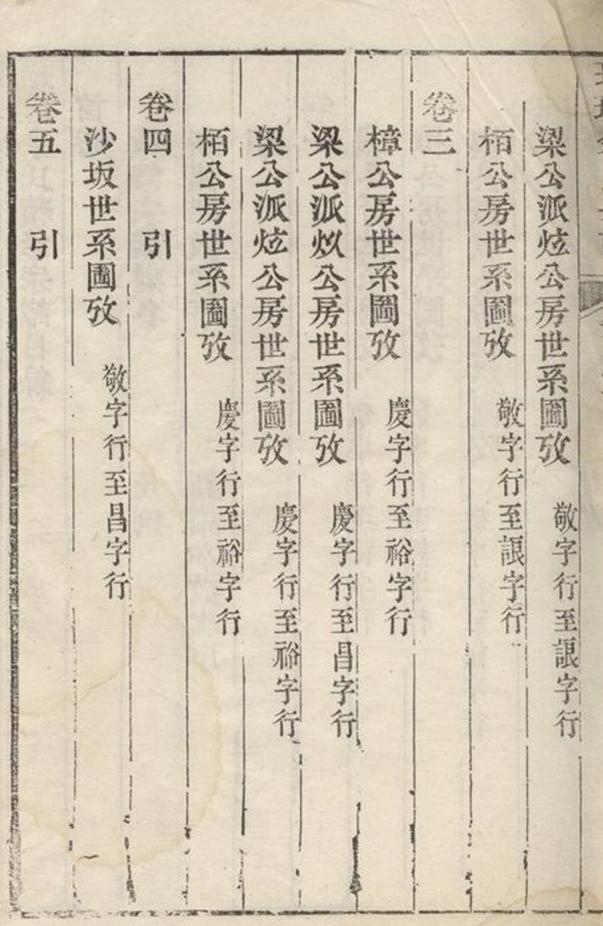 梁公派炫公房世系圖攷 敬字行至詪字行
栢公房世系圖攷 敬字行至詪字行
卷三
樟公房世系圖攷 慶字行至裕字行
梁公派炏公房世系圖攷 慶字行至昌字行
梁公派炫公房世系圖攷 慶字行至裕字行
栢公房世系圖攷 慶字行至裕字行
卷四 引
沙坂世系圖攷 敬字行至昌字行
卷五 引